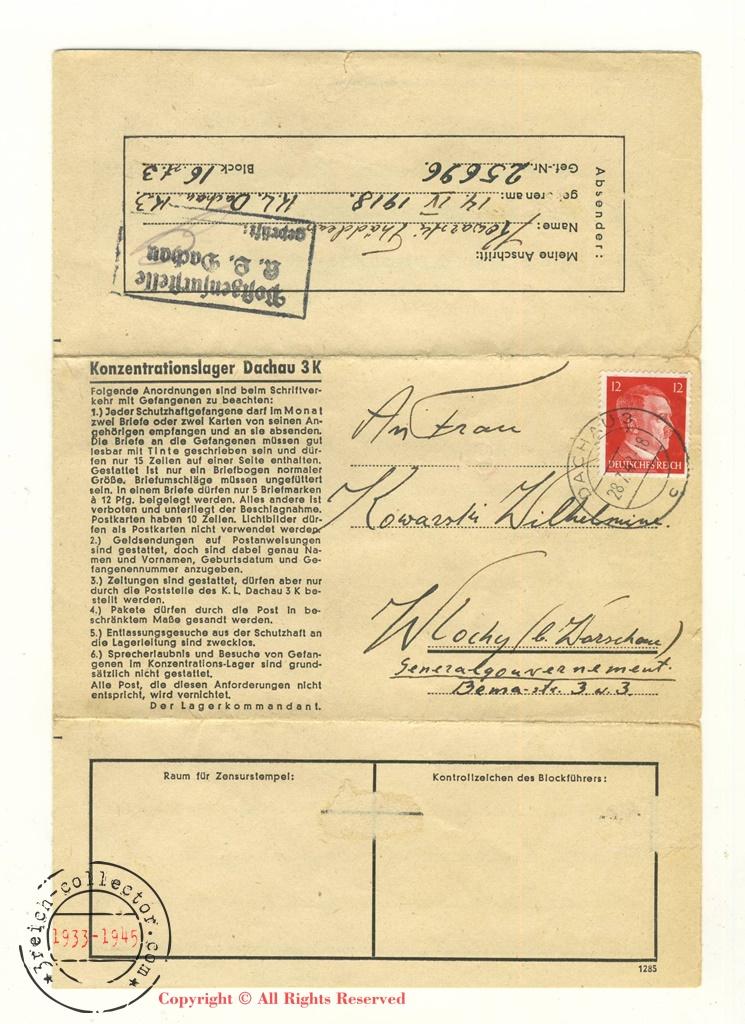 Absender:
Meine Anschrift:
Name: Kowarski Thaddeus
geboren am: 14 IV 1918. K.L. Dachau K3
Gef.-Nr. 25696. Block 16 st. 3
Postzensurstelle
K. L. Dachau
geprüft:
Konzentrationslager Dachau 3 K
Folgende Anordnungen sind beim Schriftver-
kehr mit Gefangenen zu beachten:
1.) Jeder Schutzhaftgefangene darf im Monat
zwei Briefe oder zwei Karten von seinen An-
gehörigen empfangen und an sie absenden.
Die Briefe an die Gefangenen müssen gut
lesbar mit Tinte geschrieben sein und dür-
fen nur 15 Zeilen auf einer Seite enthalten.
Gestattet ist nur ein Briefbogen normaler
Größe. Briefumschläge müssen ungefüttert
sein. In einem Briefe dürfen nur 5 Briefmarken
à 12 Pfg. beigelegt werden. Alles andere ist
verboten und unterliegt der Beschlagnahme.
Postkarten haben 10 Zeilen. Lichtbilder dür-
fen als Postkarten nicht verwendet werden.
2.) Geldsendungen auf Postanweisungen
sind gestattet, doch sind dabei genau Na-
men und Vornamen, Geburtsdatum und Ge-
fangenennummer anzugeben.
3.) Zeitungen sind gestattet, dürfen aber nur
durch die Poststelle des K. L. Dachau 3 K be-
stellt werden.
4.) Pakete dürfen durch die Post in be-
schränktem Maße gesandt werden.
5.) Entlassungsgesuche aus der Schutzhaft an
die Lagerleitung sind zwecklos.
6.) Sprecherlaubnis und Besuche von Gefan-
genen im Konzentrations-Lager sind grund-
sätzlich nicht gestattet.
Alle Post, die diesen Anforderungen nicht
entspricht, wird vernichtet.
Der Lagerkommandant.
12 12
DEUTSCHES REICH
DACHAU 3
An Frau
Kowarski Wilhelmine.
Wlochy (b. Warschau)
Generalgouvernement.
Bema-str. 3 w. 3.
Raum für Zensurstempel:
Kontrollzeichen des Blockführers:
1285
3reich-collector.com
1933-1945
Copyright © All Rights Reserved